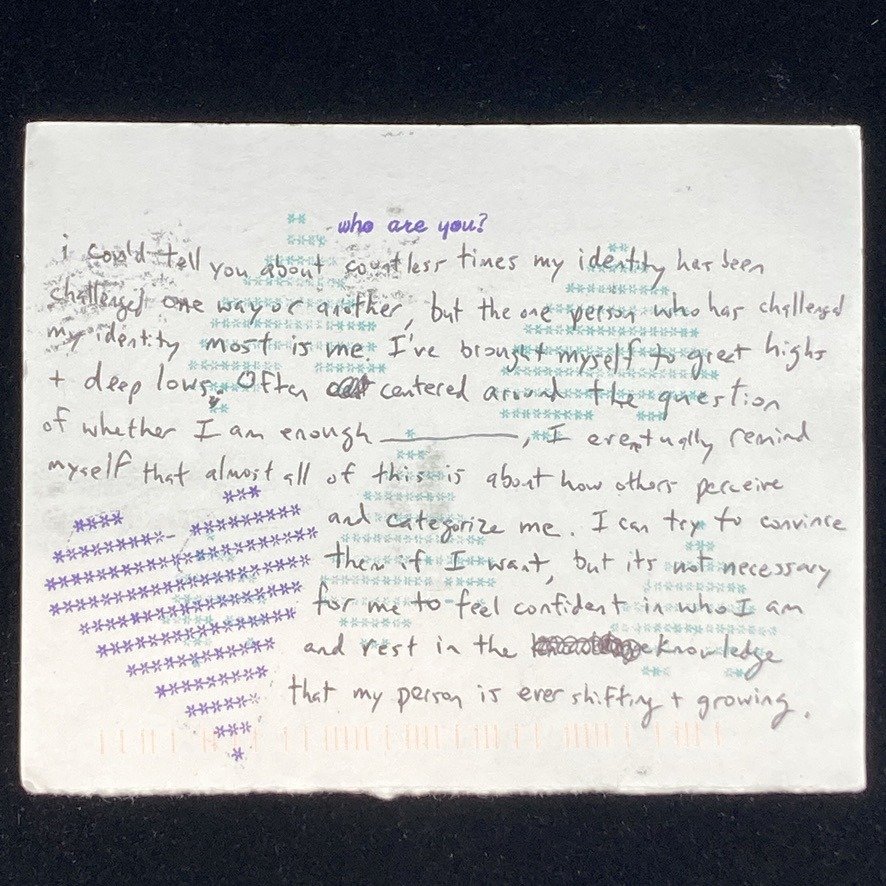 who are you?
i could tell you about countless times my identity has been
challenged one way or another, but the one person who has challenged
my identity most is me. I've brought myself to great highs
+ deep lows. Often centered around the question
of whether I am enough ________, I eventually remind
myself that almost all of this is about how others perceive
and categorize me. I can try to convince
them if I want, but its not necessary
for me to feel confident in who I am
and rest in the knowledge
that my person is ever shifting + growing.